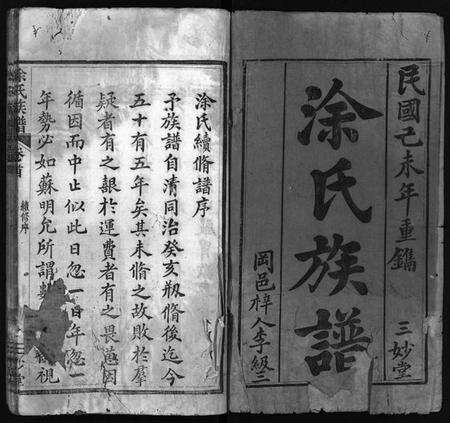 民國己未年重鐫
涂氏族譜
三妙堂
岡邑梓人李級三
涂氏續脩譜序
予族譜自清同治癸亥刱脩後迄今
五十有五年矣其未脩之故敗於羣
疑者有之艱於運費者有之畏葸因
循因而中止似此日忽一日年忽一
年勢必如蘇明允所謂
視
涂氏族譜
卷首
續修序